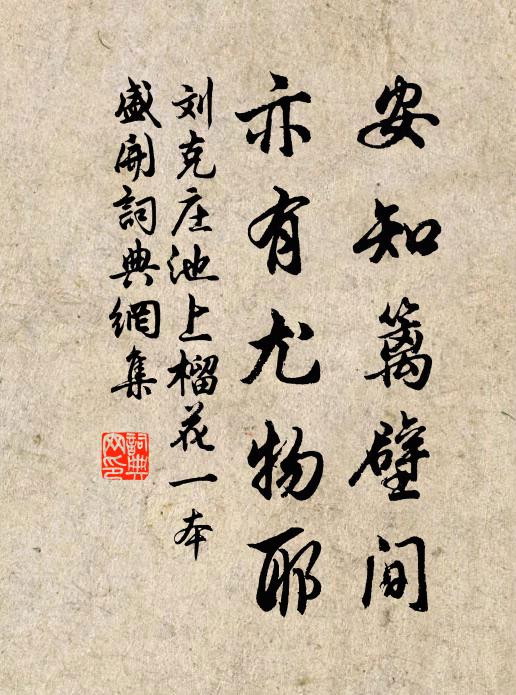 安知篱壁间
亦有尤物耶
刘克庄池上榴花一本
盛开词典網集
詞典
网印